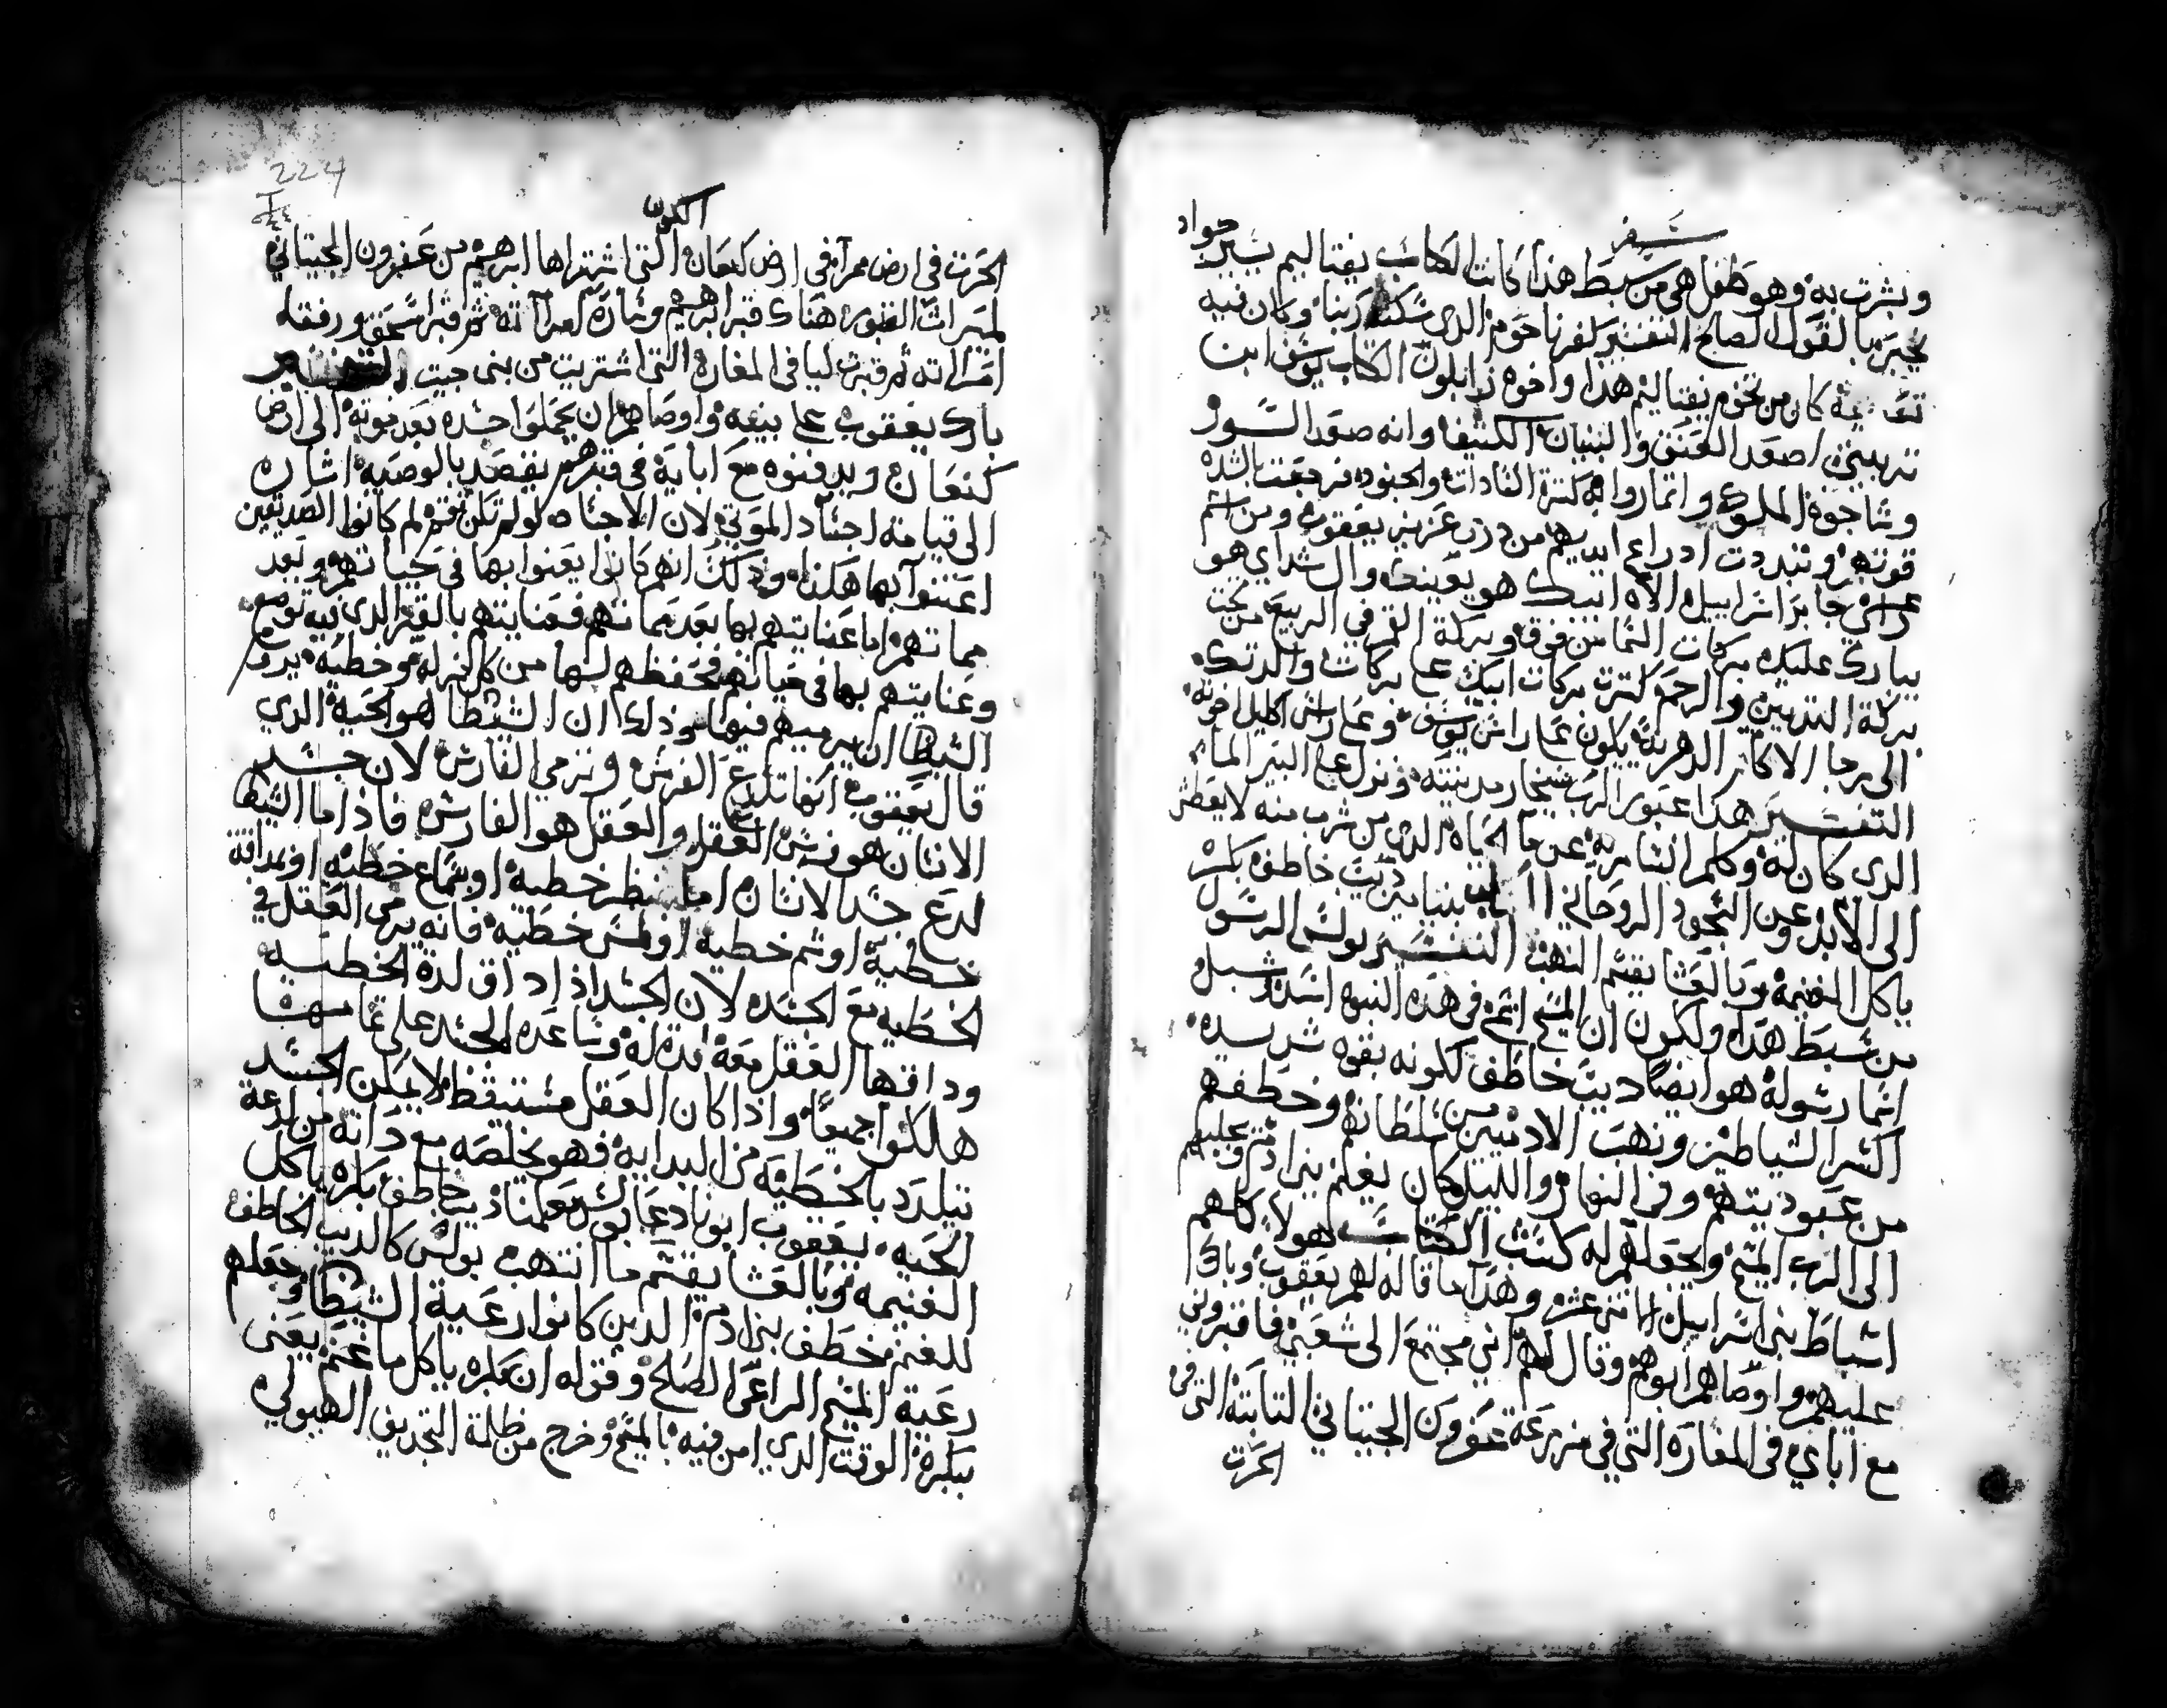 سفر
وبشرت به وهو طفل هي من سبط هذا كانت الكتاب يفتاليم يشير جواد
يخبر بالقول الصالح التفسير كفرناحوم الذي سكنه ربنا وكان فيه
كان من تخوم يفتاليم هذا واخوه زابلون الكتاب يوسف ابن
تربيتي اصعد العنق والبنيان الكشف وانه صعد السور
وشاجوه الملوك واتماروا به كترة القادات والجنود فرجعت بالشده
قوتهم وتبددت ادراع ايديهم من عزيز يعقوب ومن اسم
جابر اسراييل الاه ابيك هو يعينك وال شداي هو
يبارك عليك بركات السما من فوق وبركة القرفي الربيع من تحت
بركة التديين والرحم كترت بركات ابيك على بركات والدتك
الى رجا الاكام الدهريه يكون على راس يوسف وعلى راس اكليل اخوته
التفسير هكذا عبور الرب شيخار مدينته ونزل على البير الما
الذي كان له وكلم السامريه عن ما الحياه الذي من شرب منه لا يعطش
الى الابد وعن السجود الروحاني بنيامين ديب خاطف بكر
ياكل الغنيمه وبالعشا يقسم النهب التفسير بولس الرسول
من سبط هذا ولكون ان المسيح اسمه في هذه النبوه اسد وشبل
اسما رسوله هو ايضا ديب خاطف لكونه بقوه شديده
اكسر الشياطين ونهب الادميين من سلطانه وخطفهم
من عبوديتهم وفي النهار والليل كان يغلم بنى ادم وعليهم
الى الرب المسيح ويجعلهم له كسب الكتاب هولا كلهم
اسباط بني اسراييل الاتني عشر وهذا ما قاله لهم يعقوب وبارك
عليهم واوصاهم ابوهم وقال لهم اني مجتمع الى شعبي فاقبروني
مع اباي في المغاره التي في مزرعة عفرون الجيتاني التانيه التي في
الحرت
224
الكون
الحرت في ارض ممرا في ارض كنعان التي اشتراها ابرهيم من عفرون الجيتاني
لميرات القبور هناك قبر ابرهيم وساره امراته تم قبر اسحق ورفقه
امراته تم قبرت ليا في المغاره التي اشتريت من بني جيت التفسير
بارك يعقوب على بنيه واوصاهم ان يحملوا جسده بعد موته الى ارض
كنعان ويدفنوه مع ابايه في قبرهم يقصد بالوصيه اشاره
الى قيامة اجساد الموتى لان الاجساد لو لم تكن تقوم لم كانوا الصديقين
اعتنوا بها هكذا وذلك انهم كانوا يعنوا بها في حياتهم وبعد
مماتهم اما عنايتهم بها بعد مماتهم فعنايتهم بالقبر الذي فيه توضع
وعنايتهم بها في حياتهم فحفظهم لها من كل زله وخطيه يريد
الشيطان يرميهم فيها وذلك ان الشيطان هو الحيه الذي
قال يعقوب انها تلدغ الفرس وترمي الفارس لان جسد
الانسان هو فرس العقل والعقل هو الفارس فاذا ما الشيطان
لدغ جسد الانسان اما بنظر خطيه او بسماع خطيه او بمداقة
خطيه او شم خطيه او لمس خطيه فانه يرمي العقل في
الخطيه مع الجسد لان الجسد اذا داق لدة الخطيه
وداقها العقل معه لدة له وساعده الجسد على تمامها
هلكوا جميعا واذا كان العقل مستيقظ لا يمكن الجسد
يتلدد بالخطيه من البدايه فهو يخلصه مع داته من لدعة
الحيه يعقوب ابونا دعا بولس معلمنا ديب خاطف بكره ياكل
الغنيمه وبالعشا يقسم ما انتهب بولس كالديب الخاطف
للغنم خطف بنى ادم الدين كانوا رعية الشيطان وجعلهم
رعية المسيح الراعي الصالح وقوله ان بكره ياكل ما غنم يعني
ببكره الوقت الدي امن فيه بالمسيح وخرج من ظلمة التجديف الهيولي